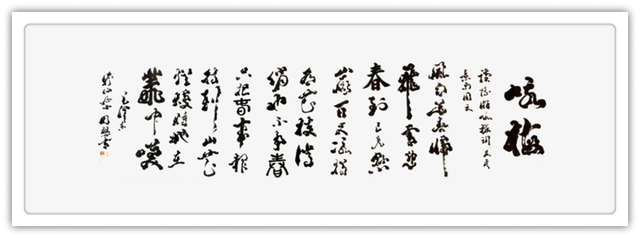 咏梅
读陆游咏梅词反其
意而用之
風雨送春归
飛雪迎
春到已是悬
崖百丈冰犹
有花枝俏
俏也不争春
只把春来报
待到山花
烂漫时她在
丛中笑
毛泽东